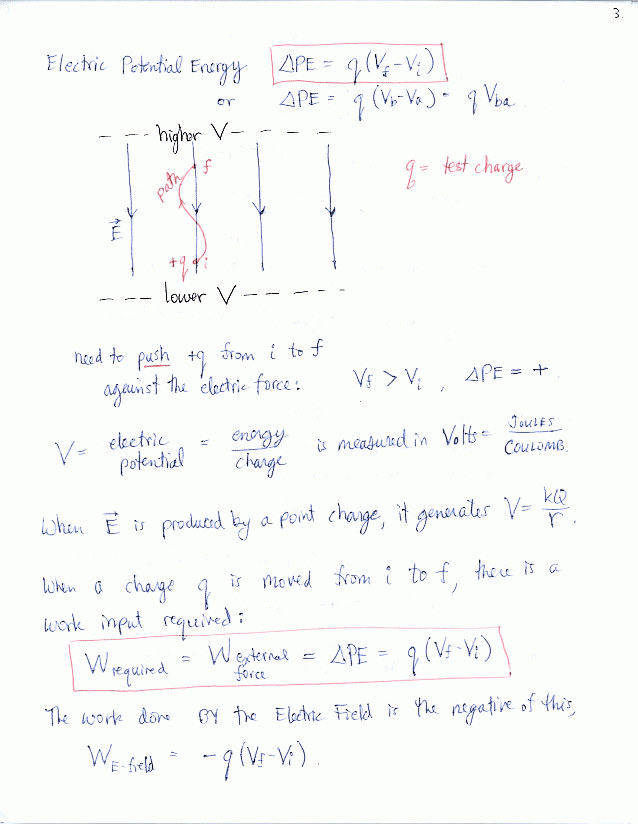 3.
Electric Potential Energy ΔPE = q (Vf - Vi)
or ΔPE = q (Vb - Va) = q Vba
higher V
f
path
q = test charge
E⃗
+q i
lower V
need to push +q from i to f
against the electric force: Vf > Vi , ΔPE = + .
V = electric potential = energy / charge is measured in Volts = JOULES / COULOMB.
When E⃗ is produced by a point charge, it generates V = kQ / r .
When a charge q is moved from i to f, there is a
work input required:
W required = W external force = ΔPE = q (Vf - Vi)
The work done BY the Electric Field is the negative of this,
W E-field = - q (Vf - Vi) .